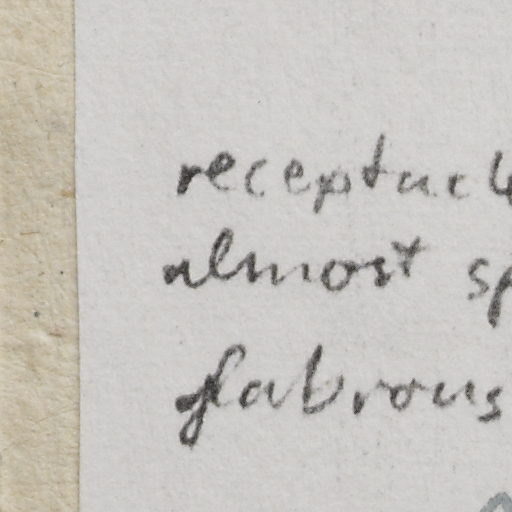 receptacl
almost sp
glabrous